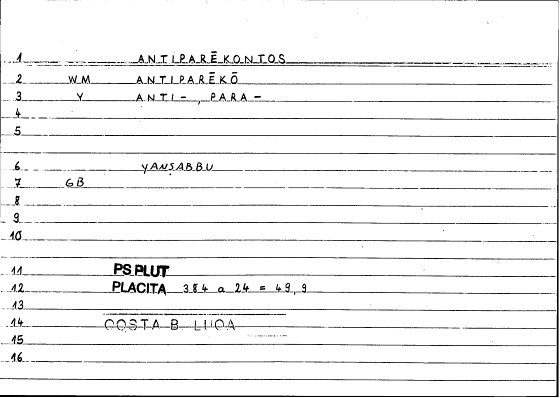 1 ANTIPARĒKONTOS
2 WM ANTIPARĒKŌ
3 Y ANTI-, PARA-
4
5
6 YANṢABBU
7 GB
8
9
10
11 PS PLUT
12 PLACITA 384 a 24 = 49,9
13
14 COSTA B. LUQA
15
16